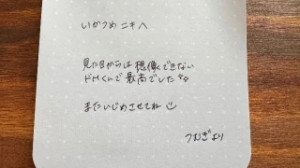 いかつめニキへ
見た目からは想像できない
ドMくんで最高でした
またいじめさせてね
つむぎより